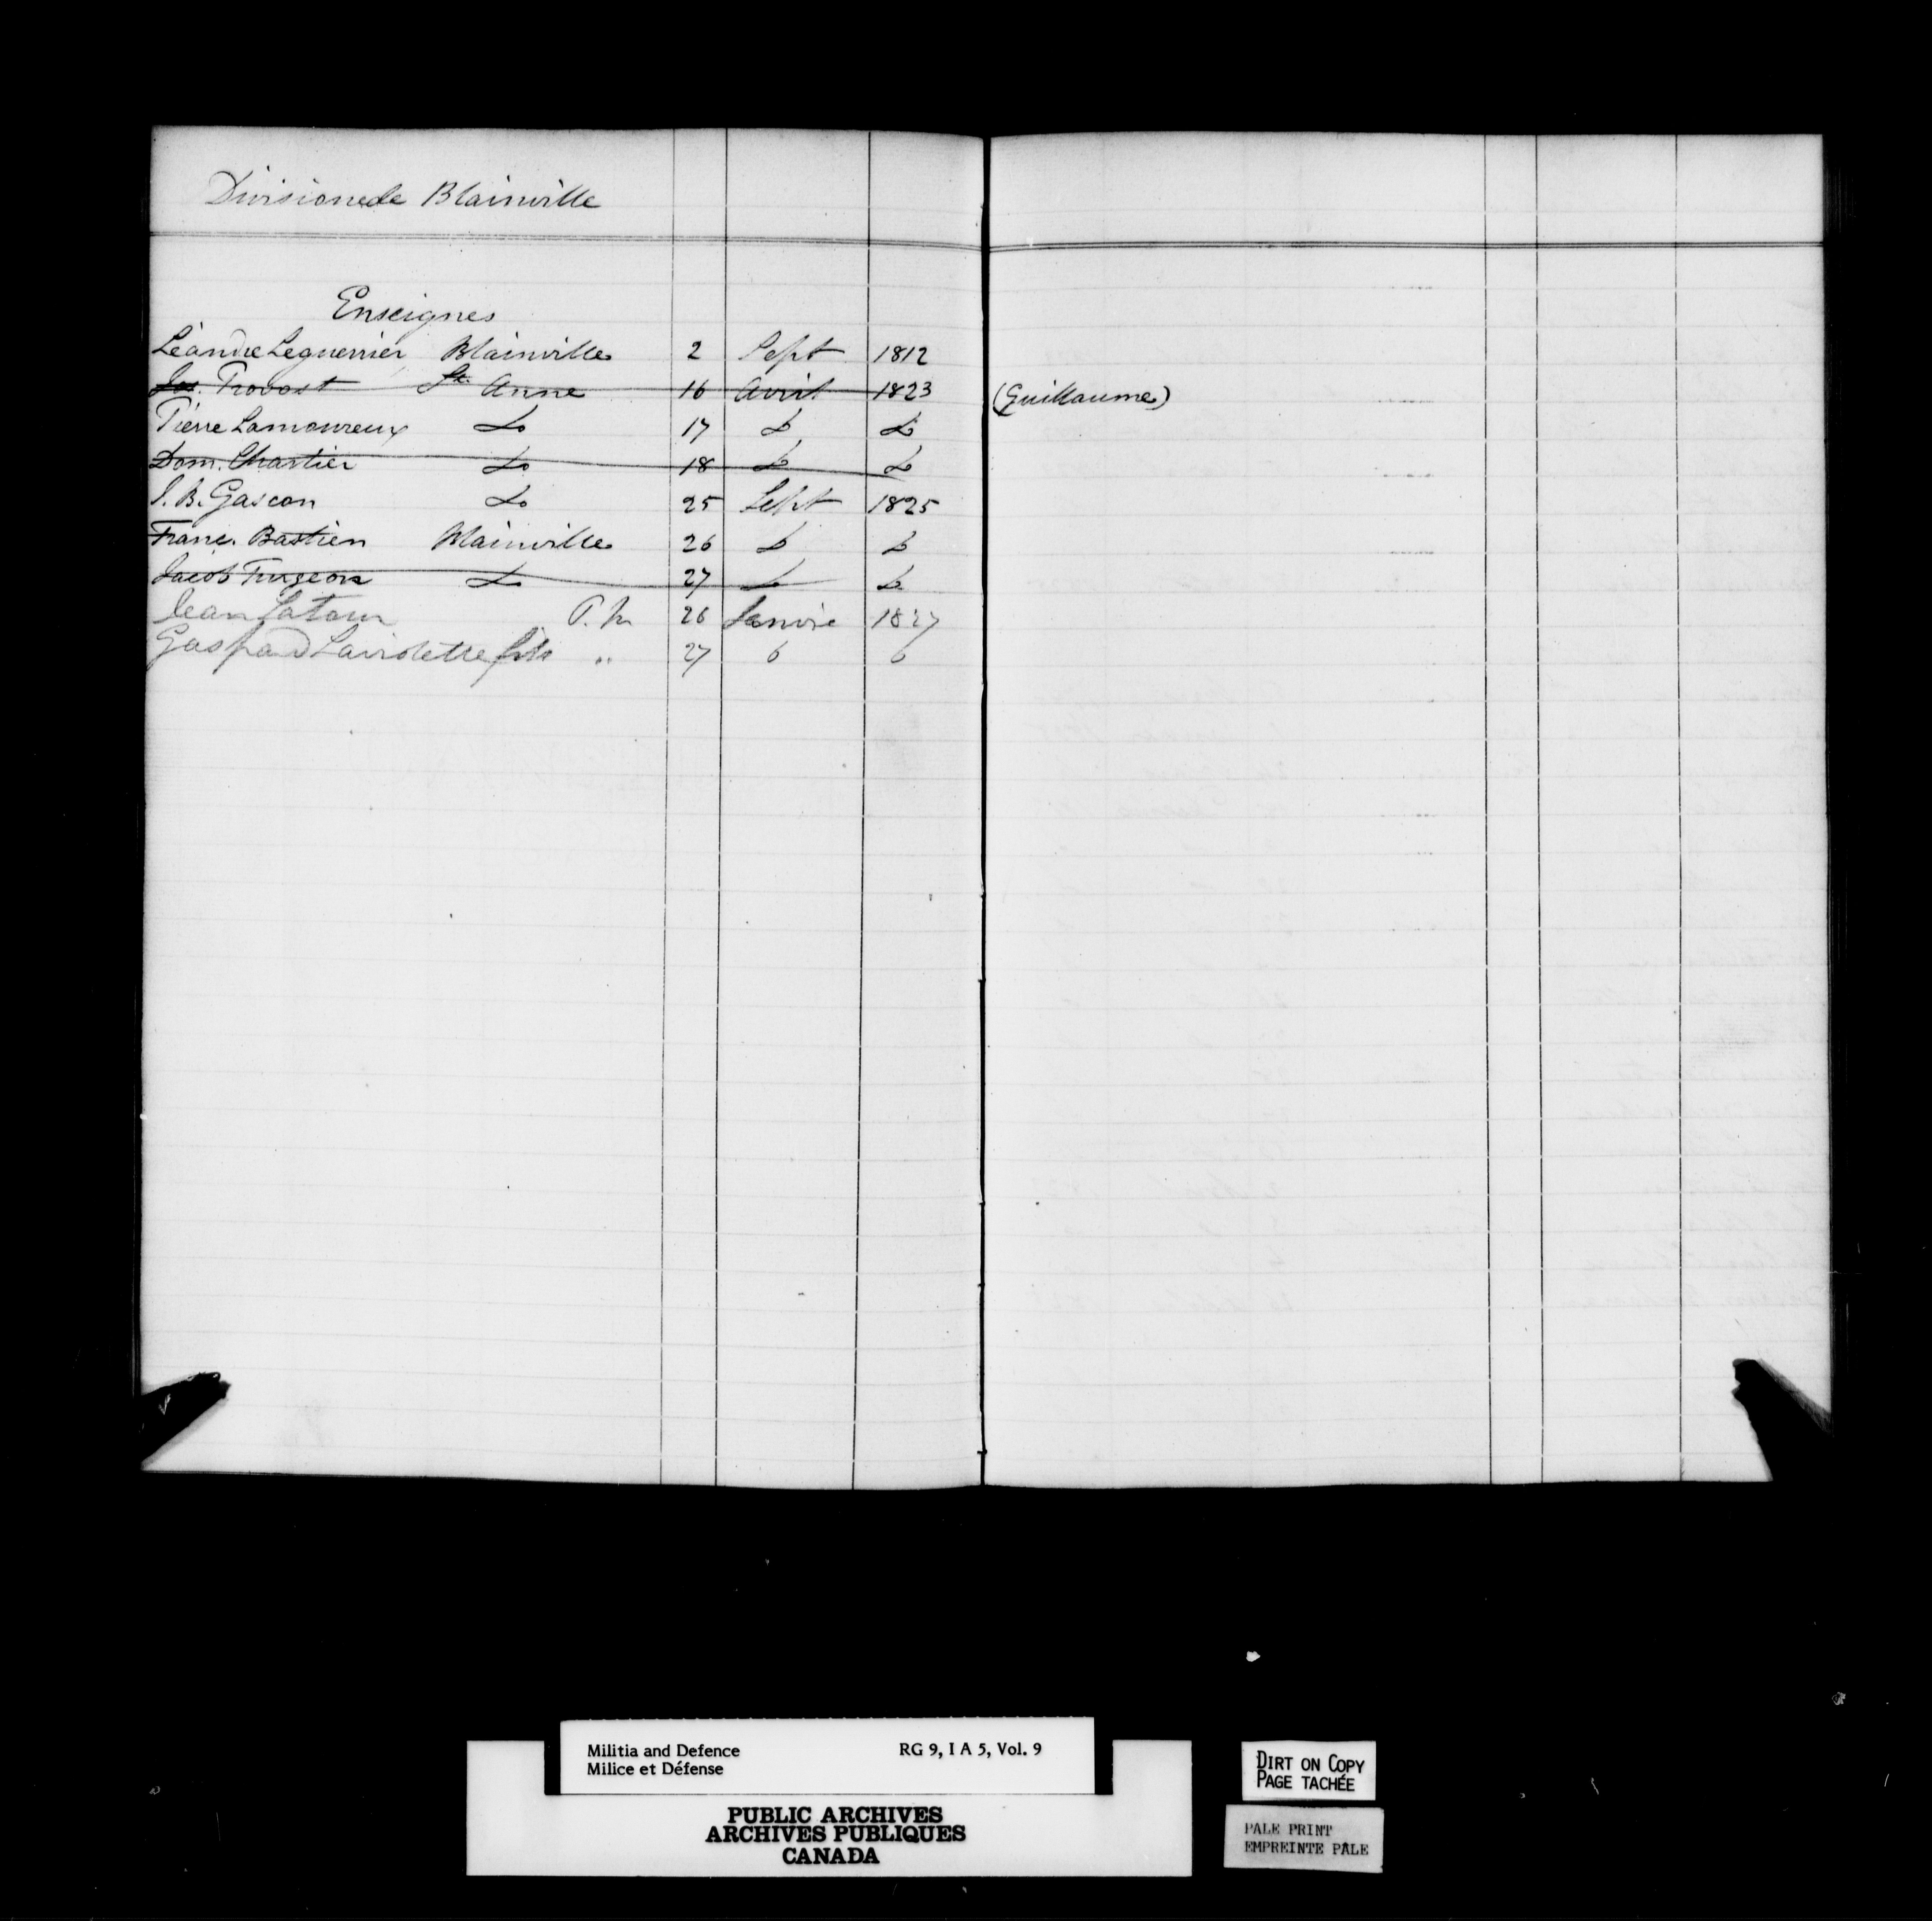 Division de Blainville
Enseignes
Léandre Leguerrier Blainville 2 Sept 1812
Jos. Provost Ste. Anne 16 Avril 1823 (Guillaume)
Pierre Lamoureux Do 17 Do Do
Dom. Chartier Do 18 Do Do
J. B. Gascon Do 25 Sept 1825
Franc. Bastien Blainville 26 Do Do
Jacob Turgeon Do 27 Do Do
Jean Latour P. M 26 Janvie 1827
Gaspard Laviolette fils " 27 6 6
Militia and Defence RG 9, I A 5, Vol. 9
Milice et Défense
PUBLIC ARCHIVES
ARCHIVES PUBLIQUES
CANADA
DIRT ON COPY
PAGE TACHÉE
PALE PRINT
EMPREINTE PALE